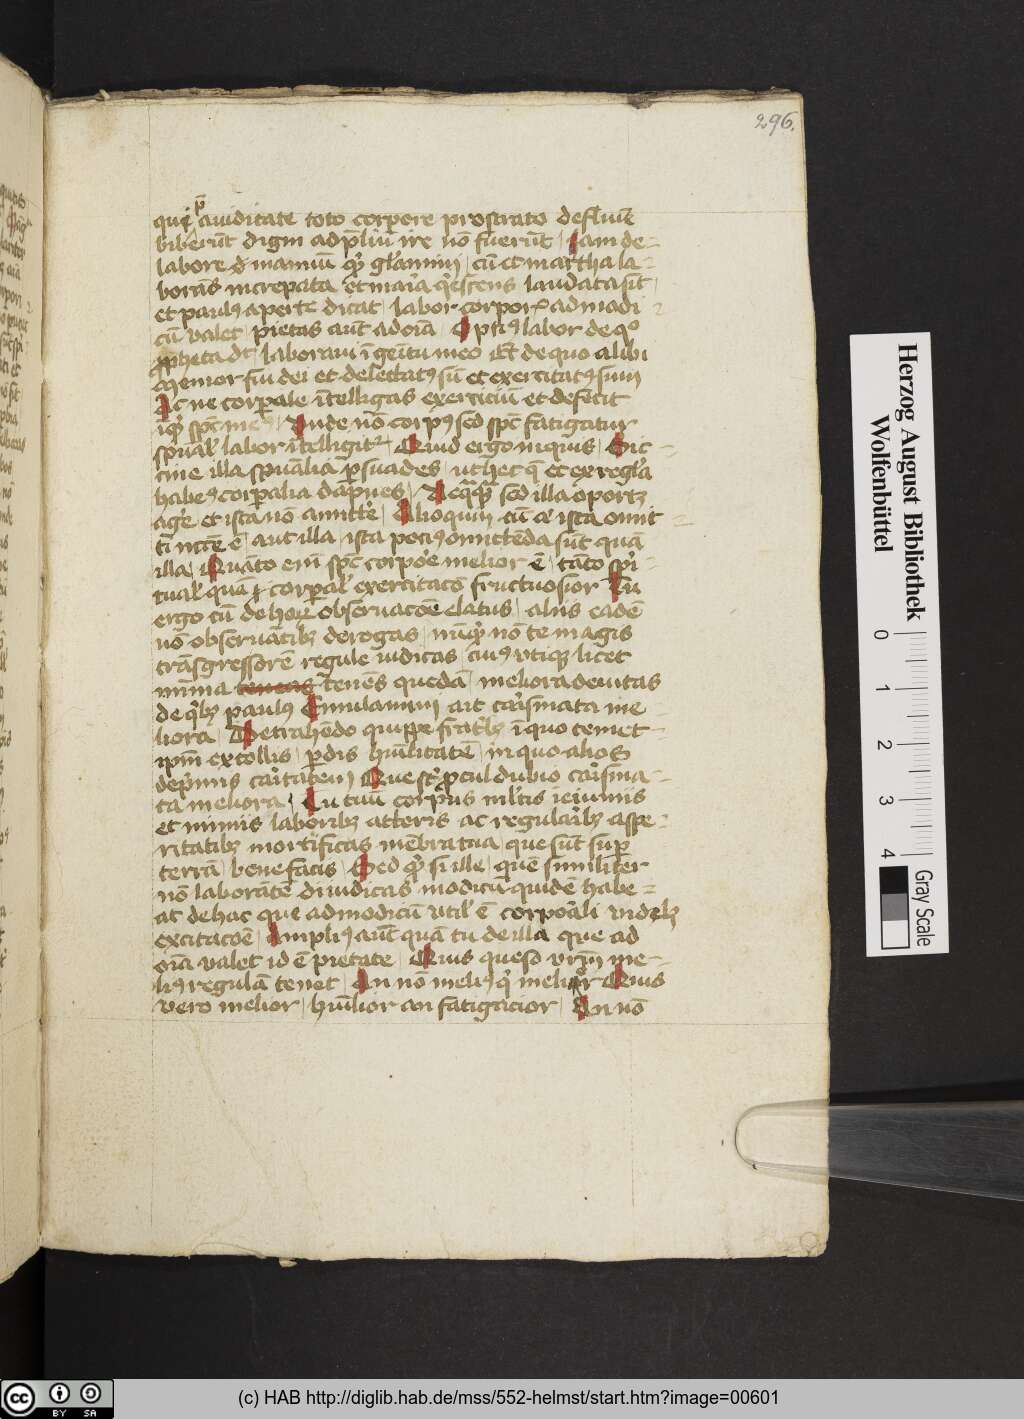 296.
qui p̄ auiditate toto corpore prostrato de flumē
biberūt digni ad p̄liū ire nō fuerūt Iam de=
labore
cū et martha la=
boras increpata et maria q̇escens laudata sūt
et paulus aperte dicat labor corporꝫ ad modi
cū valet pietas aūt ad oīa Optīꝰ labor de qͦ
ꝓpheta dt laboraui ī gemitu meo Et de quo alibi
Memor fui dei et delectatꝰ sū et exercitatꝰ sum
Ac ne corporale ītelligas exerciciū et defecit
īq̇ sp̄c meꝰ Vnde nō corpꝰ sed sp̄c fatigatur
spūal' labor ītelligitᷣ Quid ergo inquis Sic
cine illa spūalia p̄suades ut hec q̄ et ex regl'a
habeꝰ corporalia dāpnes Neq̄q̄ sed illa oportꝫ
agē et ista nō amittē Alioquin cū aͥ ista omit
ti nccē ē aut illa ista pociꝰ omittēda sūt quā
illa Quāto eni sp̄c corpoē melior ē tāto sp̄i=
tual' quā corpal' exercitacō fructuosior Tu
ergo cū de hoꝝ obseruacōe elatus aliis eadē
nō obseruātibꝫ derogas nūq̇ nō te magis
trāsgressorē regule iudicas cuiꝰ vtiqꝫ licet
minima teneas tenēs quedā meliora deuitas
de q̇bꝫ paulus Emulamini ait carismata me
liora Detrahēdo quippe fratribꝫ ī quo temet=
ipm̄ extollis perdis humilitatē in quo alios
dep̄mis caritatem Que st̄ ꝓcul dubio carisma=
ta meliora Tu tuū corpus ml'tis ieiuniis
et nimiis laboribꝫ atteris ac regularibꝫ aspe=
ritatibꝫ mortificas mēbra tua que sūt sup̄
terrā bene facis Sed q̇ si ille quē similiter
nō laborātē diiudicas modicū quidē habe=
at de hac que ad modicū util' ē corporali videlꝫ
excitacōe Ampliꝰ aūt quā tu de illa que ad
oīa valet id ē pietate Quis queso vr̄m me=
liꝰ regulā tenet An nō meliꝰ q̇ melior Quis
vero melior humilior an fatigacior An nō
Herzog August Bibliothek
Wolfenbüttel
0 1 2 3 4
Gray Scale
cc BY SA
(c) HAB http://diglib.hab.de/mss/552-helmst/start.htm?image=00601